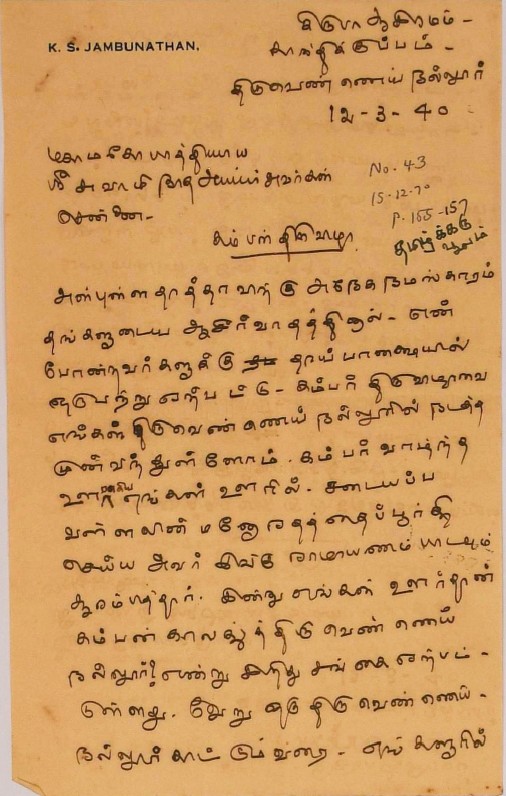 K. S. JAMBUNATHAN.
கிருபா ஆசிரமம் -
காந்திக்குப்பம் -
திருவெண்ணெய் நல்லூர்
12-3-40
மகாமகோபாத்தியாய
ஸ்ரீ சுவாமிநாத அய்யர் அவர்கள்
சென்னை -
No. 43
15-12-70
P. 155-157
கம்பன் திருவிழா
அன்புள்ள தாத்தாவிற்கு அநேக நமஸ்காரம்
தங்களுடைய ஆசிர்வாதத்தினால் - என்
போன்றவர்களுக்கு தாய் பாஷையில்
ஏற்பட்டு - கம்பர் திருவிழாவை
எங்கள் திருவெண்ணெய் நல்லூரில் நடத்த
முன்வந்துள்ளோம். கம்பர் வாழ்ந்த
ஊராகிய எங்கள் ஊரில். சடையப்ப
வள்ளலின் மனோரதத்தைப்பூர்த்தி
செய்ய அவர் இங்கே ராமாயணம் பாடவும்
ஆரம்பித்தார். இன்று எங்கள் ஊர்தான்
கம்பன் காலத்துத் திருவெண்ணெய்
நல்லூர்? என்று சங்கை ஏற்பட் -
டுள்ளது. வேறு ஒரு திருவெண்ணெய் -
நல்லூர் காட்டும்வரை - எங்களூரில்